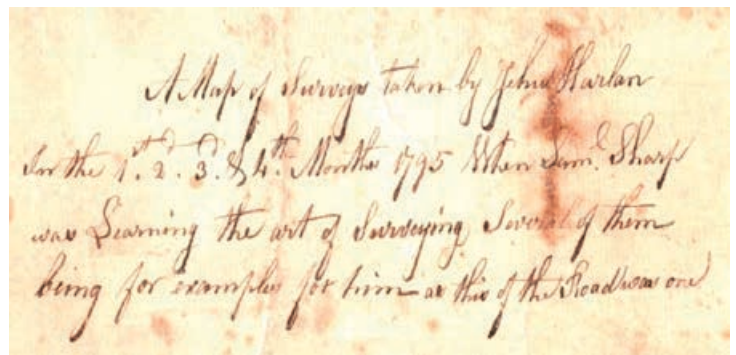 A Map of Surveys taken by John Harlan
In the 1st. 2d. 3d. & 4th. Months 1795 When Saml. Sharp
was Learning the art of Surveying Several of them
being for examples for him as this of the Road was one